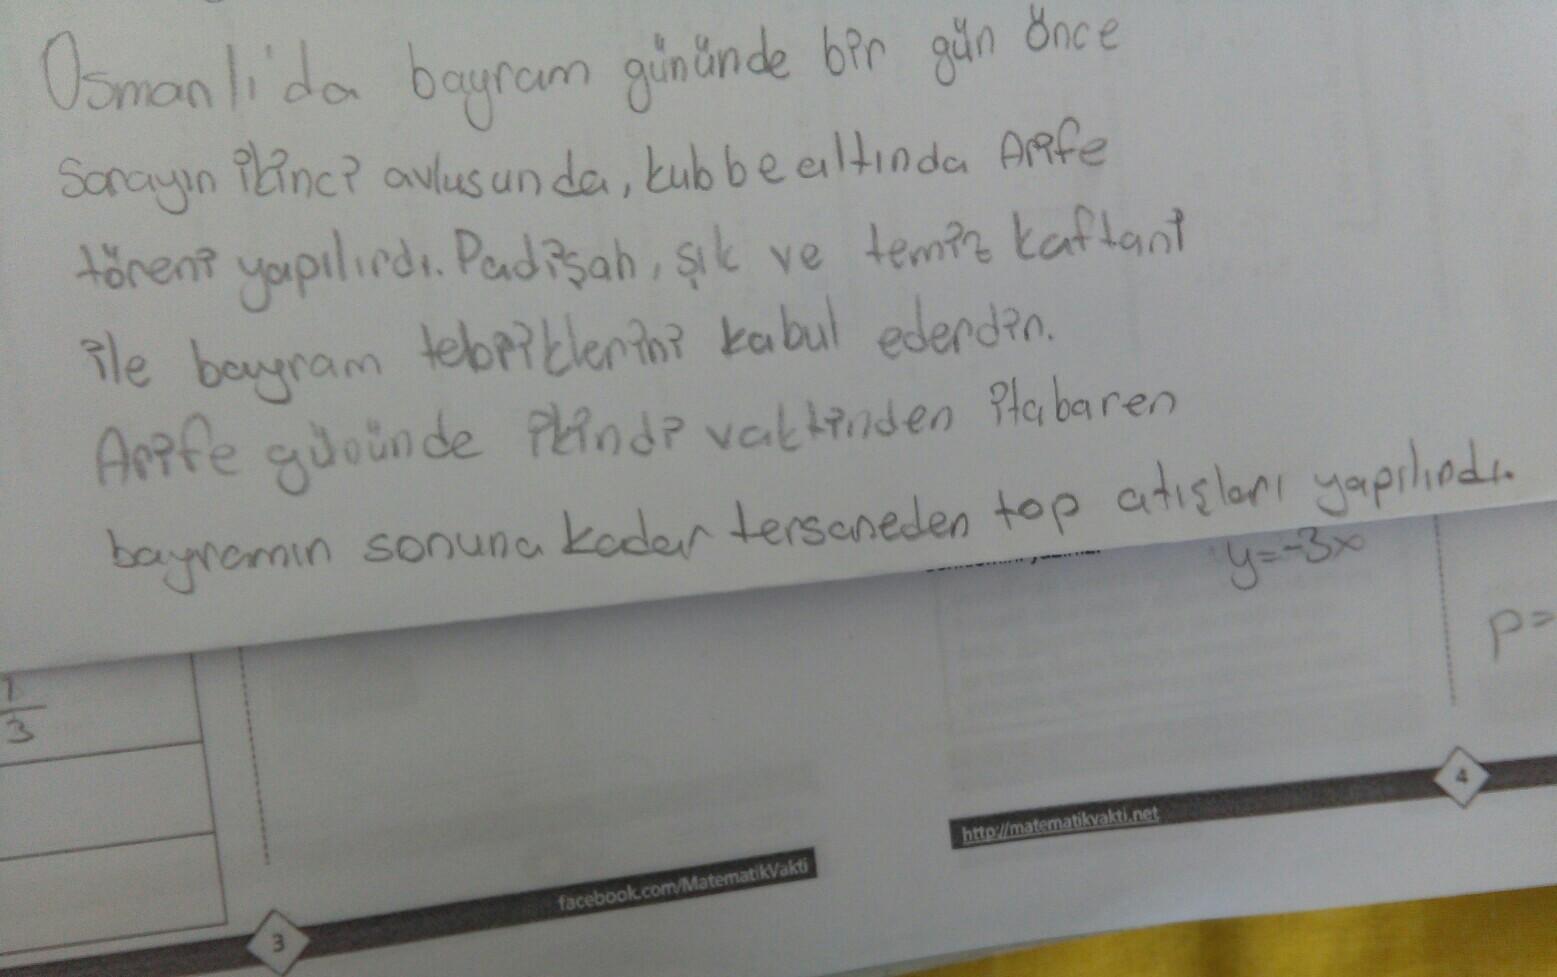 Osmanlı'da bayram gününde bir gün önce
Sarayın ikinci avlusunda, kubbealtında Arife
töreni yapılırdı. Padişah, şık ve temiz kaftani
ile bayram tebriklerini kabul ederdin.
Arife gününde ikindi vaktinden itabaren
bayramın sonuna kadar tersaneden top atışları yapılırdı.
y=-3x
p=
1
3
http://matematikvakti.net
4
facebook.com/MatematikVakti
3